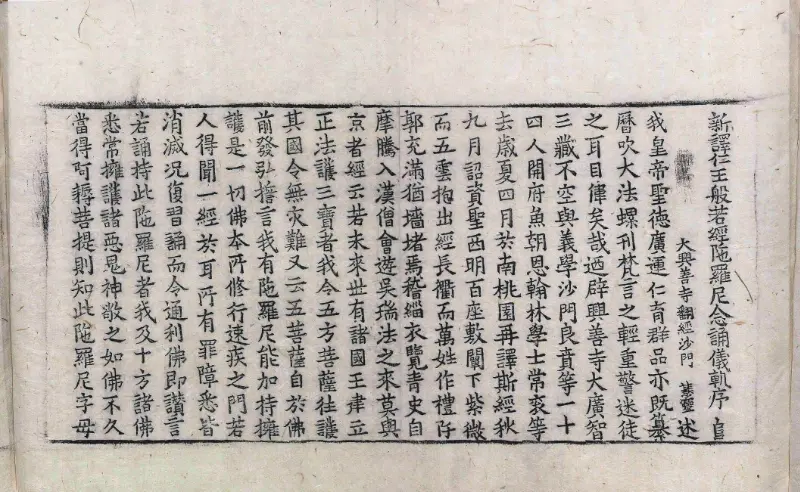 新譯仁王般若經陁羅尼念誦儀軌序
大興善寺翻經沙門 慧靈 述
我皇帝聖德廣運仁育群品亦既纂
曆吹大法螺刊梵言之輕重警迷徒
之耳目偉矣哉迺辟興善寺大廣智
三藏不空與義學沙門良賁等一十
四人開府魚朝恩翰林學士常衮等
去歲夏四月於南桃園再譯斯經秋
九月詔資聖西明百座敷闡下紫微
而五雲抱出經長衢而萬姓作禮阡
郭充滿猶墻堵焉稽緇衣覽青史自
摩騰入漢僧會遊吳瑞法之來莫與
京者經云若未來世有諸國王建立
正法護三寶者我令五方菩薩往護
其國令無灾難又云五菩薩自於佛
前發弘誓言我有陁羅尼能加持擁
護是一切佛本所修行速疾之門若
人得聞一經於耳所有罪障悉皆
消滅况復習誦而令通利佛即讚言
若誦持此陁羅尼者我及十方諸佛
悉常擁護諸惡鬼神敬之如佛不久
當得阿耨菩提則知此陁羅尼字母